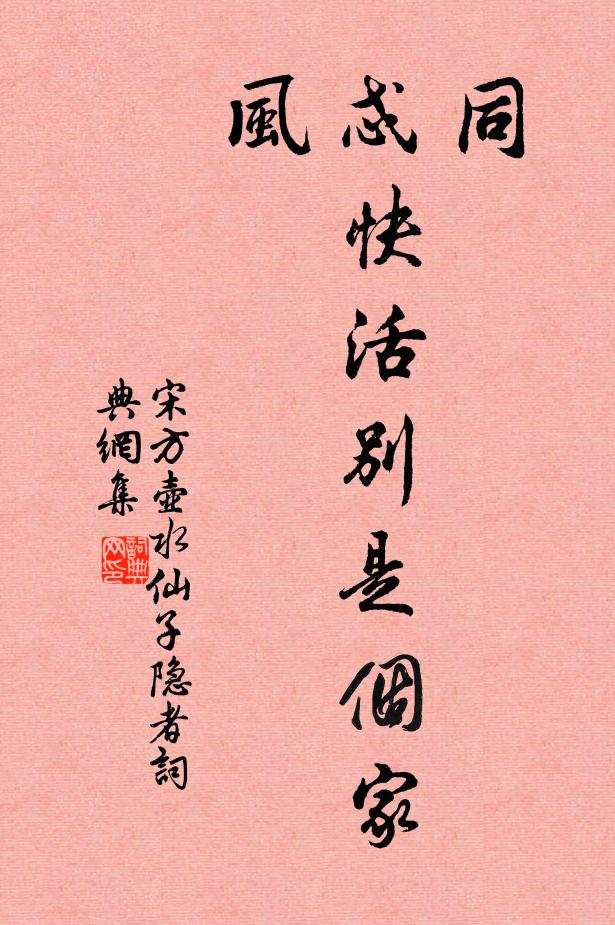 同
忒快活別是個家
風
宋方壺水仙子隐者詞
典網集
詞典
网印